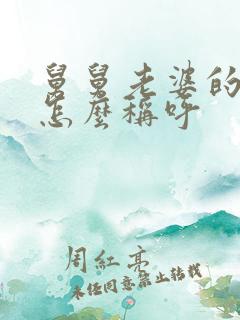 舅舅老婆的
怎麼稱呼
周紅亮
未经同意禁止转载